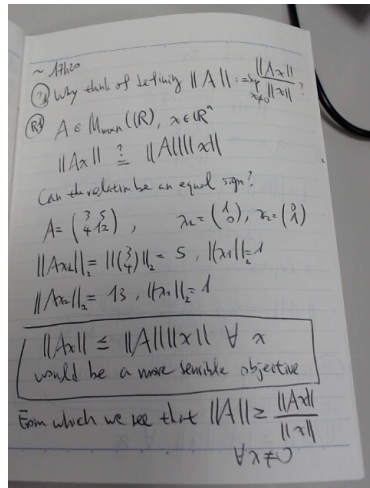 ~ 17h20
Q: Why think of defining ||A|| := sup x≠0 ||Ax||/||x|| ?
A ∈ Mmxn(ℝ), x ∈ ℝⁿ
||Ax|| ≟ ||A||||x||
Can the relation be an equal sign?
A = (3 5 4 12), x₁ = (1 0), x₂ = (0 1)
||Ax₁||₂ = ||(3 4)||₂ = 5, ||x₁||₂ = 1
||Ax₂||₂ = 13, ||x₂||₂ = 1
||Ax|| ≤ ||A||||x|| ∀ x
would be a more sensible objective
From which we see that ||A|| ≥ ||Ax||/||x||
∀ x ≠ 0